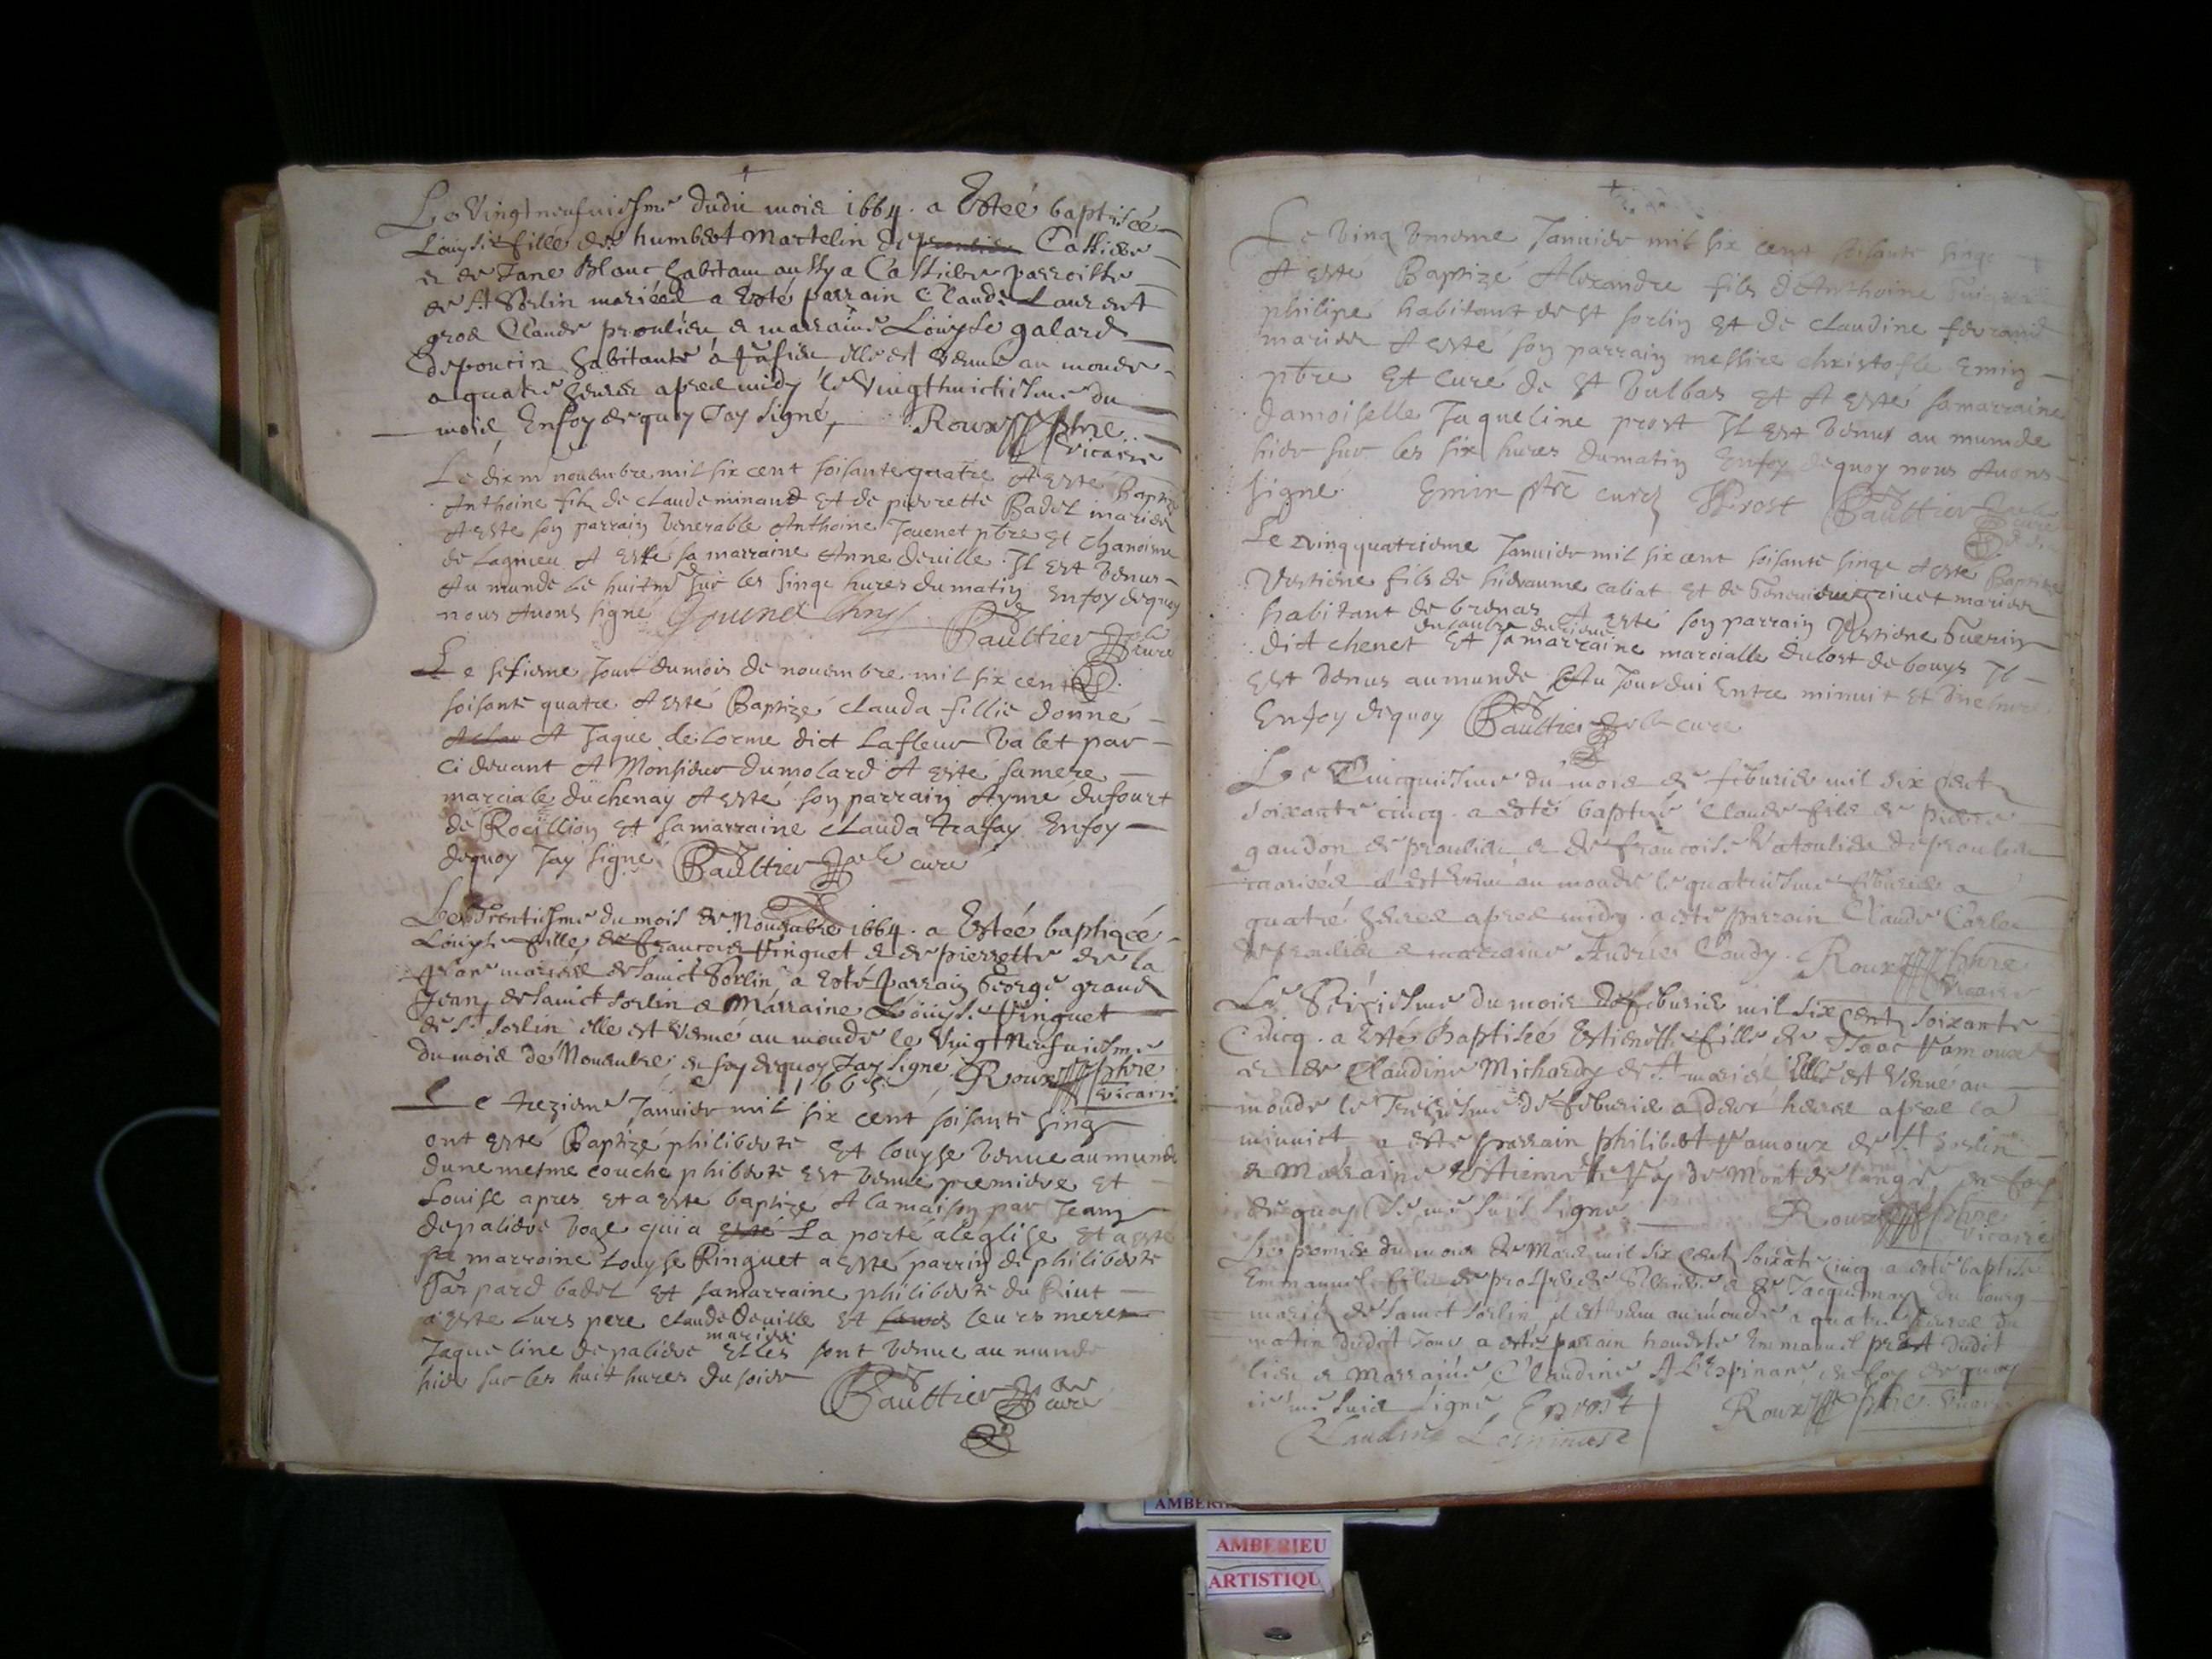 Le Vingt neufuiesme dudit mois 1664. a Esteé baptiseé
Louyse fille de humbert Martelin de Cassière
et de Jane Blanc habitant aussy a Cassière parroisse
de St Sorlin mariéés a esté parrain Claude Laurent
gros Claude proulieu et marraine Louyse galard
deponcin habitante a elle est venue au monde
a quatre heures apres midy le Vingthuictiesme du
mois, En foy de quoy Jay signé, Roux ptre
vicaire
Le dixm nouembre mil six cent soisante quatre A esté Baptizé
Anthoine fils de claude minaud Et de pierrette Badel mariés
A este son parrain venerable Anthoine Jouenet ptre et chanoisne
de Lagnieu A Esté sa marraine Anne deuille Il est venus
Au munde Le huitme Sur les singe hures du matin En foy dequoy
nous Auons signé
Baulttier curé
Le sisieme Jour du mois de nouembre mil six cent
soisante quatre A esté Baptizé clauda fillie donné
A Jaque de Lorme dict Lafleur valet par
ci deuant A Monsieur dumolard A esté sa mere
marciale duchenay A esté son parrain Aymé dufourt
de Rocillion Et sa marraine clauda trafay En foy
dequoy Jay signé Baulttier curé
Le Trentiesme du mois de Nouembre 1664. a Esteé baptiseé
Louyse fille de francois Vinguet et de pierrette de la
mariéés de Sainct Sorlin a esté parrain George grand
Jean de Sainct Sorlin et Marraine Louyse Vinguet
de St Sorlin elle est venue au monde le Vingt Neufuiesme
du mois de Nouembre en foy dequoy Jay signé Roux ptre
1665. vicaire
Le trezieme Januier mil six cent soisante sing
ont esté Baptizé philiberte Et Louyse venue au munde
dune mesme couche phiberte est venue premiere Et
Louise apres Et a esté baptizé A la maison par Jean
depaliere qui a esté La porté a leglise Et a esté
sa marroine Louyse Ringuet a esté parrin de philiberte
Gaspard badel Et sa marraine philiberte du Riut
a este Lurs pere claude Deuille Et leurs mere
Jaqueline depaliere mariés Elles sont venue au munde
hier sur les huit hures du soier
Baulttier curé
Le vinq vnieme Januier mil six cent soisante singe
A este Baptizé Alexandre fils d'Anthoine
philipe habitant de st sorlin Et de claudine ferrand
mariés A esté son parrain messire christofle Emin
ptre Et curé de st Vulbas Et A esté sa marraine
damoiselle Jaqueline prost Il est venus au munde
hier sur les six hures du matin En foy dequoy nous Auons
signé Emin ptre curez JProst Baulttier
curé
Le vinq quatrieme Januier mil six cent soisante singe A esté Baptizé
fils de caliat Et de mariés
habitant de brenas A esté son parrain Guerin
dict chenet Et sa marraine marcialle du lost de bouys Il
est venus au munde Au Jourdui Entre minuit Et vne hure
En foy dequoy Baulttier curé
Le Cincquiesme du mois de feburier mil six cent
soixante cincq. a esté baptisé Claude fils de pierre
gaudon de proulieu et de francoise de proulieu
mariéés il est venu au monde le quatriesme feburier a
quatre heures apres midy. a esté parrain Claude
de proulieu et marraine Andrée Roux ptre
vicaire
Le Seiziesme du mois de feburier mil six cent soixante
Cincq. a Esté Baptiseé Estienette fille de Isaac Vamoux
et de Claudine Michardy de St mariés, Elle est venue au
monde le de feburier a deux heures apres la
minuict a esté parrain philibert Vamoux de St Sorlin
et Marraine Estienette de Mont de lange, en foy
dequoy Je me suis signé Roux ptre
vicaire
Le premier du mois de Mars mil six cent soixate cincq a esté baptisé
Emmanuel fils de prosper de et de Jacquema du bourg
mariés de Sainct Sorlin, il est venu au monde a quatre heures du
matin dudit Jour a esté parrain honeste Emmanuel prost dudit
lieu et Marraine Claudine A Lespinase en foy de quoy
ie me suis signé Eprost Roux ptre vicaire
Claudine Lespinase
AMBERIEU
ARTISTIQU